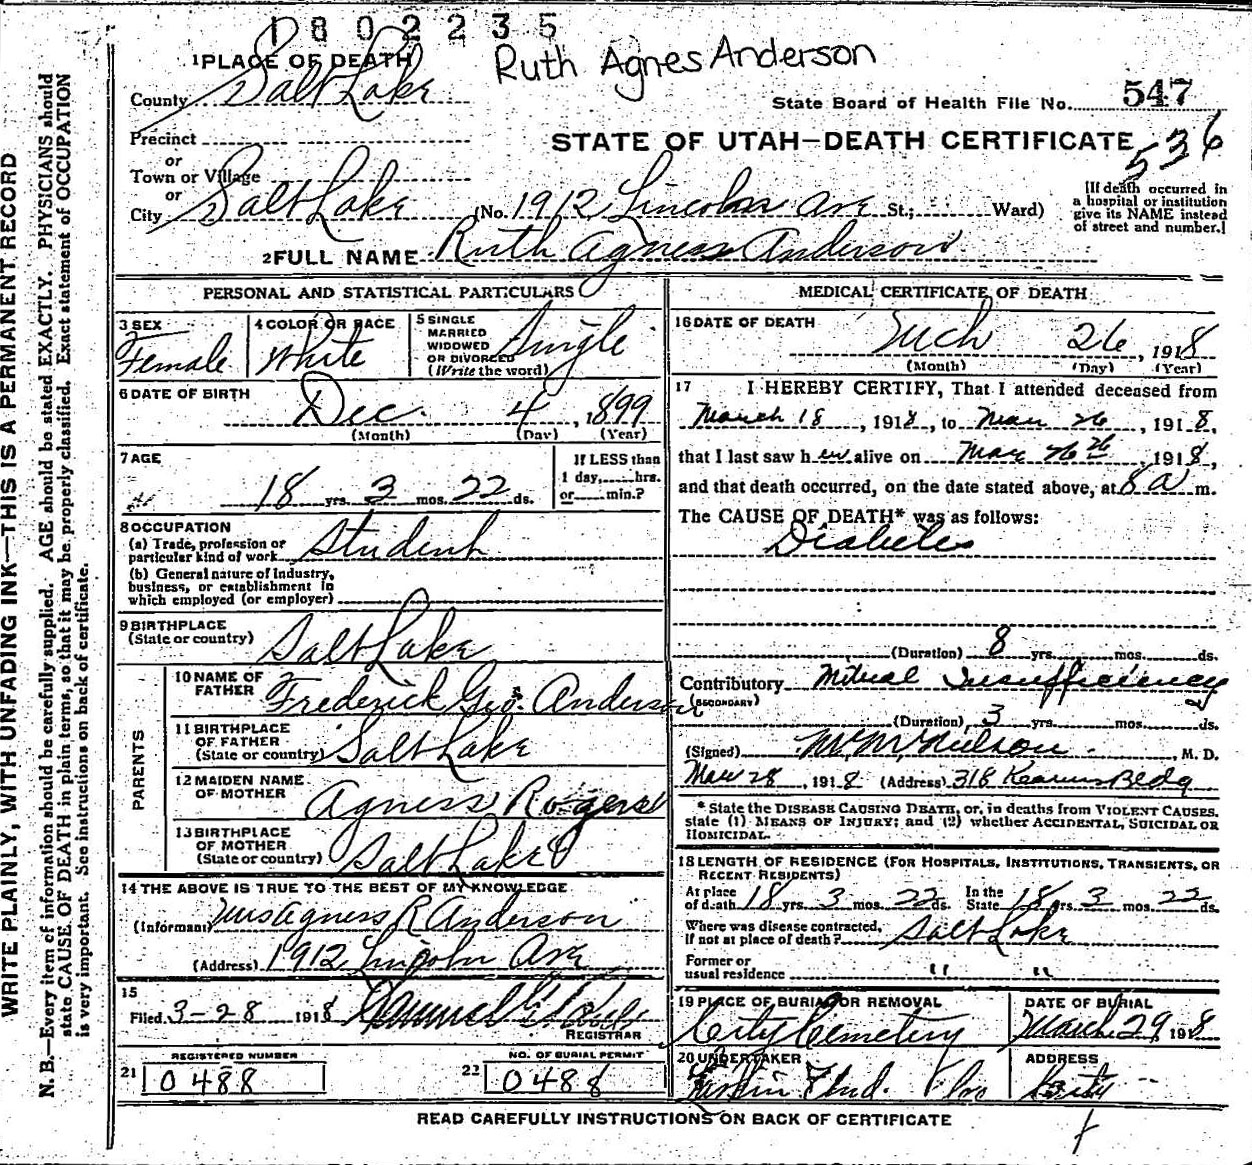 1802235
Ruth Agnes Anderson
1 PLACE OF DEATH
County Salt Lake
State Board of Health File No. 547
Precinct
STATE OF UTAH—DEATH CERTIFICATE
536
or
Town or Village
or
City Salt Lake (No. 1912 Lincoln Ave St.; Ward)
[If death occurred in
a hospital or institution
give its NAME instead
of street and number.]
2 FULL NAME Ruth Agness Anderson
PERSONAL AND STATISTICAL PARTICULARS
3 SEX
Female
4 COLOR OR RACE
White
5 SINGLE
MARRIED
WIDOWED
OR DIVORCED
(Write the word)
Single
6 DATE OF BIRTH
Dec. 4, 1899
(Month) (Day) (Year)
7 AGE
18 yrs. 3 mos. 22 ds.
If LESS than
1 day, hrs.
or min.?
8 OCCUPATION
(a) Trade, profession or
particular kind of work Student
(b) General nature of industry,
business, or establishment in
which employed (or employer)
9 BIRTHPLACE
(State or country) Salt Lake
PARENTS
10 NAME OF
FATHER Frederick Geo. Anderson
11 BIRTHPLACE
OF FATHER
(State or country) Salt Lake
12 MAIDEN NAME
OF MOTHER Agness Rogers
13 BIRTHPLACE
OF MOTHER
(State or country) Salt Lake
14 THE ABOVE IS TRUE TO THE BEST OF MY KNOWLEDGE
(Informant) Mrs Agness R Anderson
(Address) 1912 Lincoln Ave
15
Filed 3-28 1918
REGISTRAR
REGISTERED NUMBER
21 0488
NO. OF BURIAL PERMIT
22 0488
MEDICAL CERTIFICATE OF DEATH
16 DATE OF DEATH
Mch 26, 1918
(Month) (Day) (Year)
17 I HEREBY CERTIFY, That I attended deceased from
March 18, 1918, to Mar 26, 1918,
that I last saw her alive on Mar 26th, 1918,
and that death occurred, on the date stated above, at 8 a m.
The CAUSE OF DEATH* was as follows:
Diabetes
(Duration) 8 yrs. mos. ds.
Contributory Mitral Insufficiency
(SECONDARY)
(Duration) 3 yrs. mos. ds.
(Signed) M. M. Nielson, M. D.
Mar 28, 1918 (Address) 318 Kearns Bldg
* State the DISEASE CAUSING DEATH, or, in deaths from VIOLENT CAUSES,
state (1) MEANS OF INJURY; and (2) whether ACCIDENTAL, SUICIDAL OR
HOMICIDAL.
18 LENGTH OF RESIDENCE (FOR HOSPITALS, INSTITUTIONS, TRANSIENTS, OR
RECENT RESIDENTS)
At place
of death 18 yrs. 3 mos. 22 ds.
In the
State 18 yrs. 3 mos. 22 ds.
Where was disease contracted,
If not at place of death? Salt Lake
Former or
usual residence " "
19 PLACE OF BURIAL OR REMOVAL
City Cemetery
DATE OF BURIAL
March 29, 1918
20 UNDERTAKER
ADDRESS
City
READ CAREFULLY INSTRUCTIONS ON BACK OF CERTIFICATE
WRITE PLAINLY, WITH UNFADING INK—THIS IS A PERMANENT RECORD
N. B.—Every item of information should be carefully supplied. AGE should be stated EXACTLY. PHYSICIANS should
state CAUSE OF DEATH in plain terms, so that it may be properly classified. Exact statement of OCCUPATION
is very important. See instructions on back of certificate.